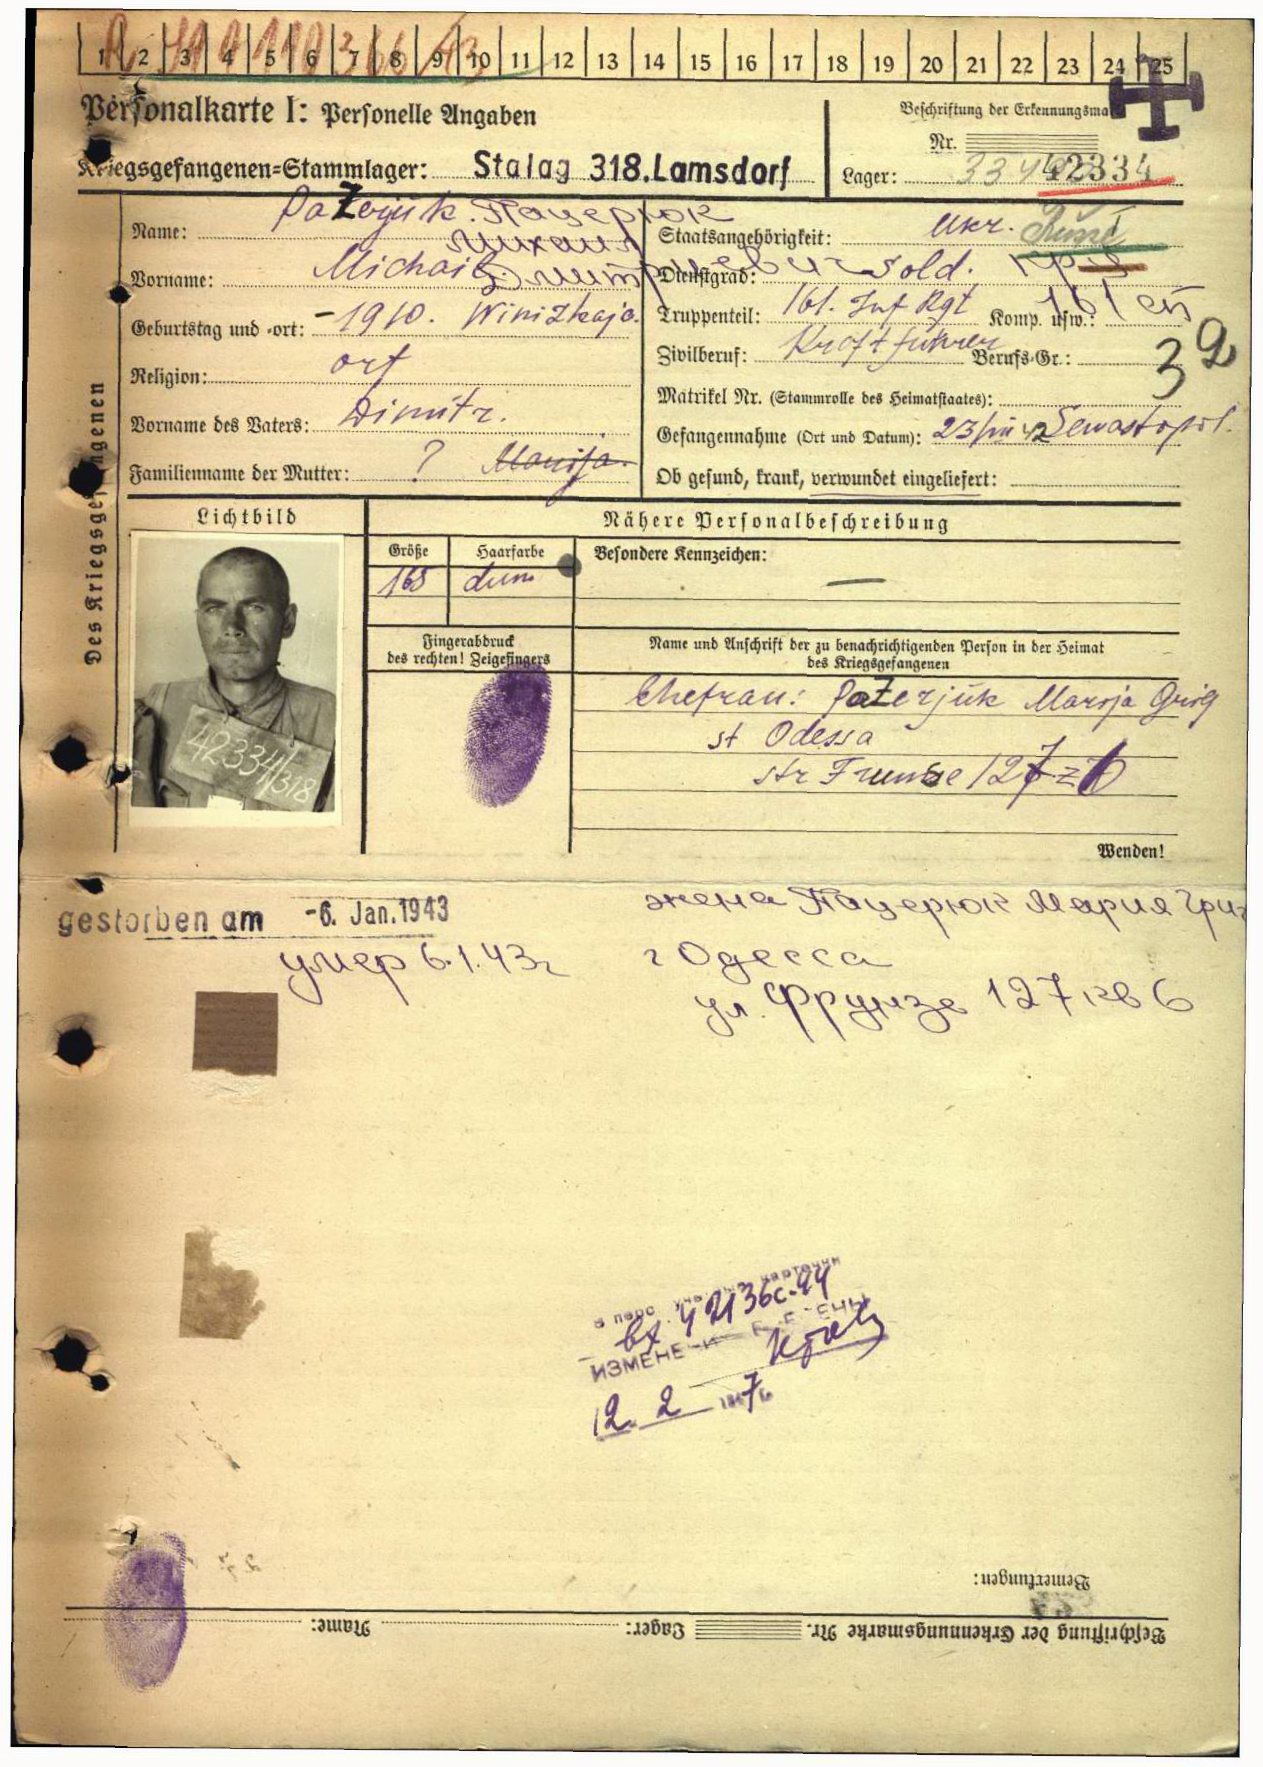 1 2 3 4 5 6 7 8 9 10 11 12 13 14 15 16 17 18 19 20 21 22 23 24 25
Personalkarte I: Personelle Angaben
Beschriftung der Erkennungsma
Nr.
Kriegsgefangenen=Stammlager: Stalag 318.Lamsdorf
Lager: 42334
Des Kriegsgefangenen
Name: Pazerjuk. Пацерюк
Михаил
Vorname: Michail. Дмитриевич
Geburtstag und -ort: -1910. Winizkaja.
Religion: ort
Vorname des Vaters: Dimitr.
Familienname der Mutter: ? Marija.
Staatsangehörigkeit: Ukr.
Dienstgrad: Sold.
Truppenteil: 161. Inf Rgt Komp. usw.: 161 сп
Zivilberuf: Kraftführer Berufs-Gr.: 39
Matrikel Nr. (Stammrolle des Heimatstaates):
Gefangennahme (Ort und Datum): Sewastopol.
Ob gesund, krank, verwundet eingeliefert:
Lichtbild
42334/318
Nähere Personalbeschreibung
Größe Haarfarbe Besondere Kennzeichen:
165 —
Fingerabdruck
des rechten! Zeigefingers
Name und Anschrift der zu benachrichtigenden Person in der Heimat
des Kriegsgefangenen
Ehefrau: Pazerjuk Marija Grig
st Odessa
str Frunse 127
Wenden!
gestorben am -6. Jan. 1943
умер 6.1.43г
жена Пацерюк Мария Григ
г Одесса
ул. Фрунзе 127 кв 6
вх.
12. 2
Bemerkungen:
Beschriftung der Erkennungsmarke Nr. Lager: Name: